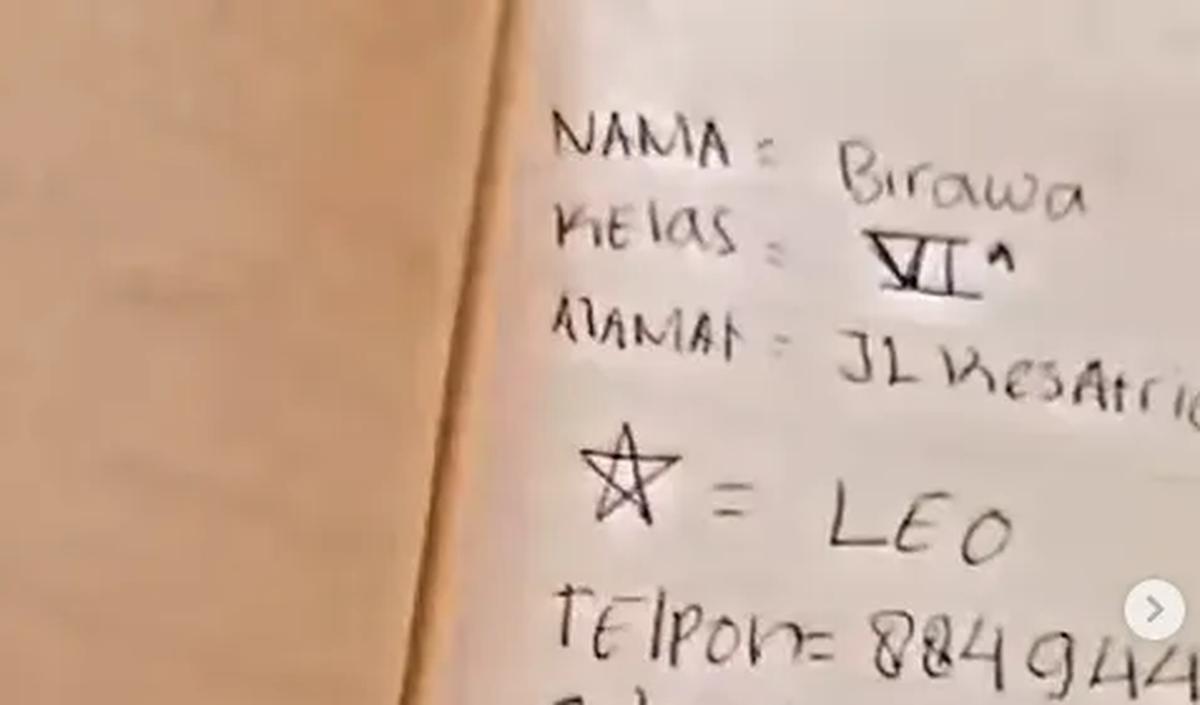 NAMA : Birawa
KElas : VI^
AlAMAt : JL KesAtri
☆ = LEO
TElpon= 884944